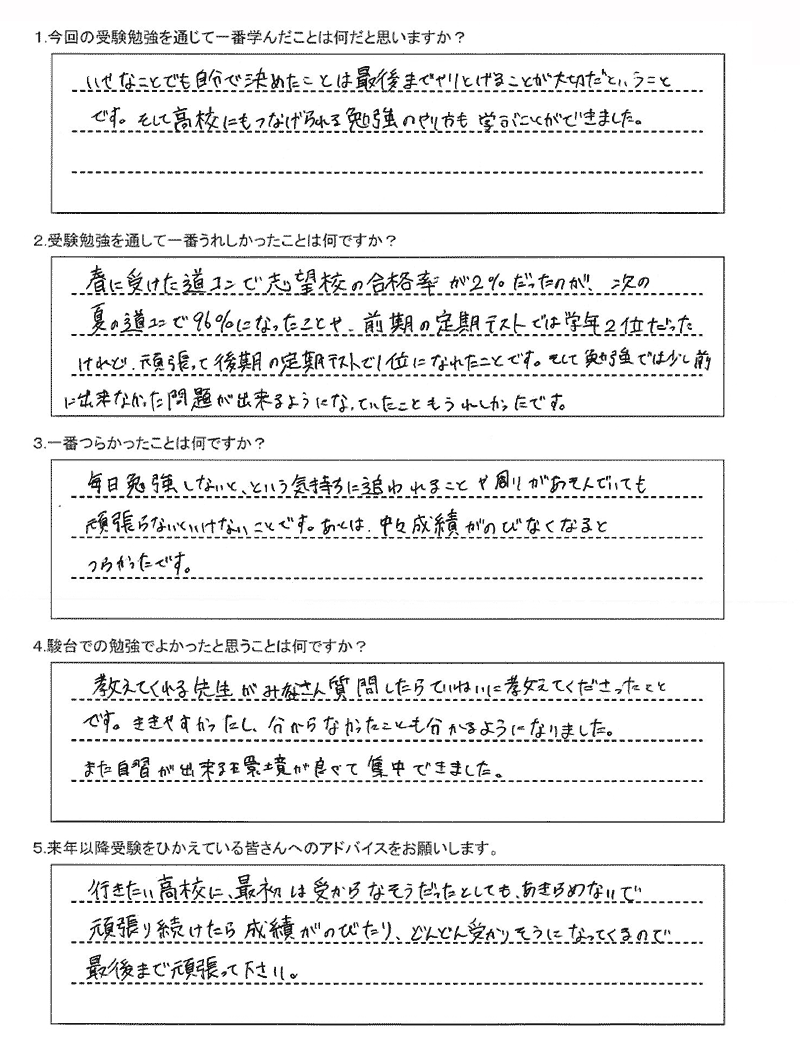 1.今回の受験勉強を通じて一番学んだことは何だと思いますか？
いせなことでも自分で決めたことは最後までやりとげることが大切だということ
です。そして高校にもつなげられる勉強のやり方も学ぶことができました。
2.受験勉強を通して一番うれしかったことは何ですか？
春に受けた道コンで志望校の合格率が2%だったのが、次の
夏の道コンで96%になったことや、前期の定期テストでは学年2位だった
けれど、頑張って後期の定期テストで1位になれたことです。そして勉強では少し前
に出来なかった問題が出来るようになっていたこともうれしかったです。
3.一番つらかったことは何ですか？
毎日勉強しないと、という気持ちに追われることや周りがあそんでいても
頑張らないといけないことです。あとは、中々成績がのびなくなると
つらかったです。
4.駿台での勉強でよかったと思うことは何ですか？
教えてくれる先生がみなさん質問したらていねいに教えてくださったこと
です。ききやすかったし、分からなかったことも分かるようになりました。
また自習が出来る環境が良くて集中できました。
5.来年以降受験をひかえている皆さんへのアドバイスをお願いします。
行きたい高校に、最初は受からなそうだったとしても、あきらめないで
頑張り続けたら成績がのびたり、どんどん受かりそうになってくるので
最後まで頑張って下さい。